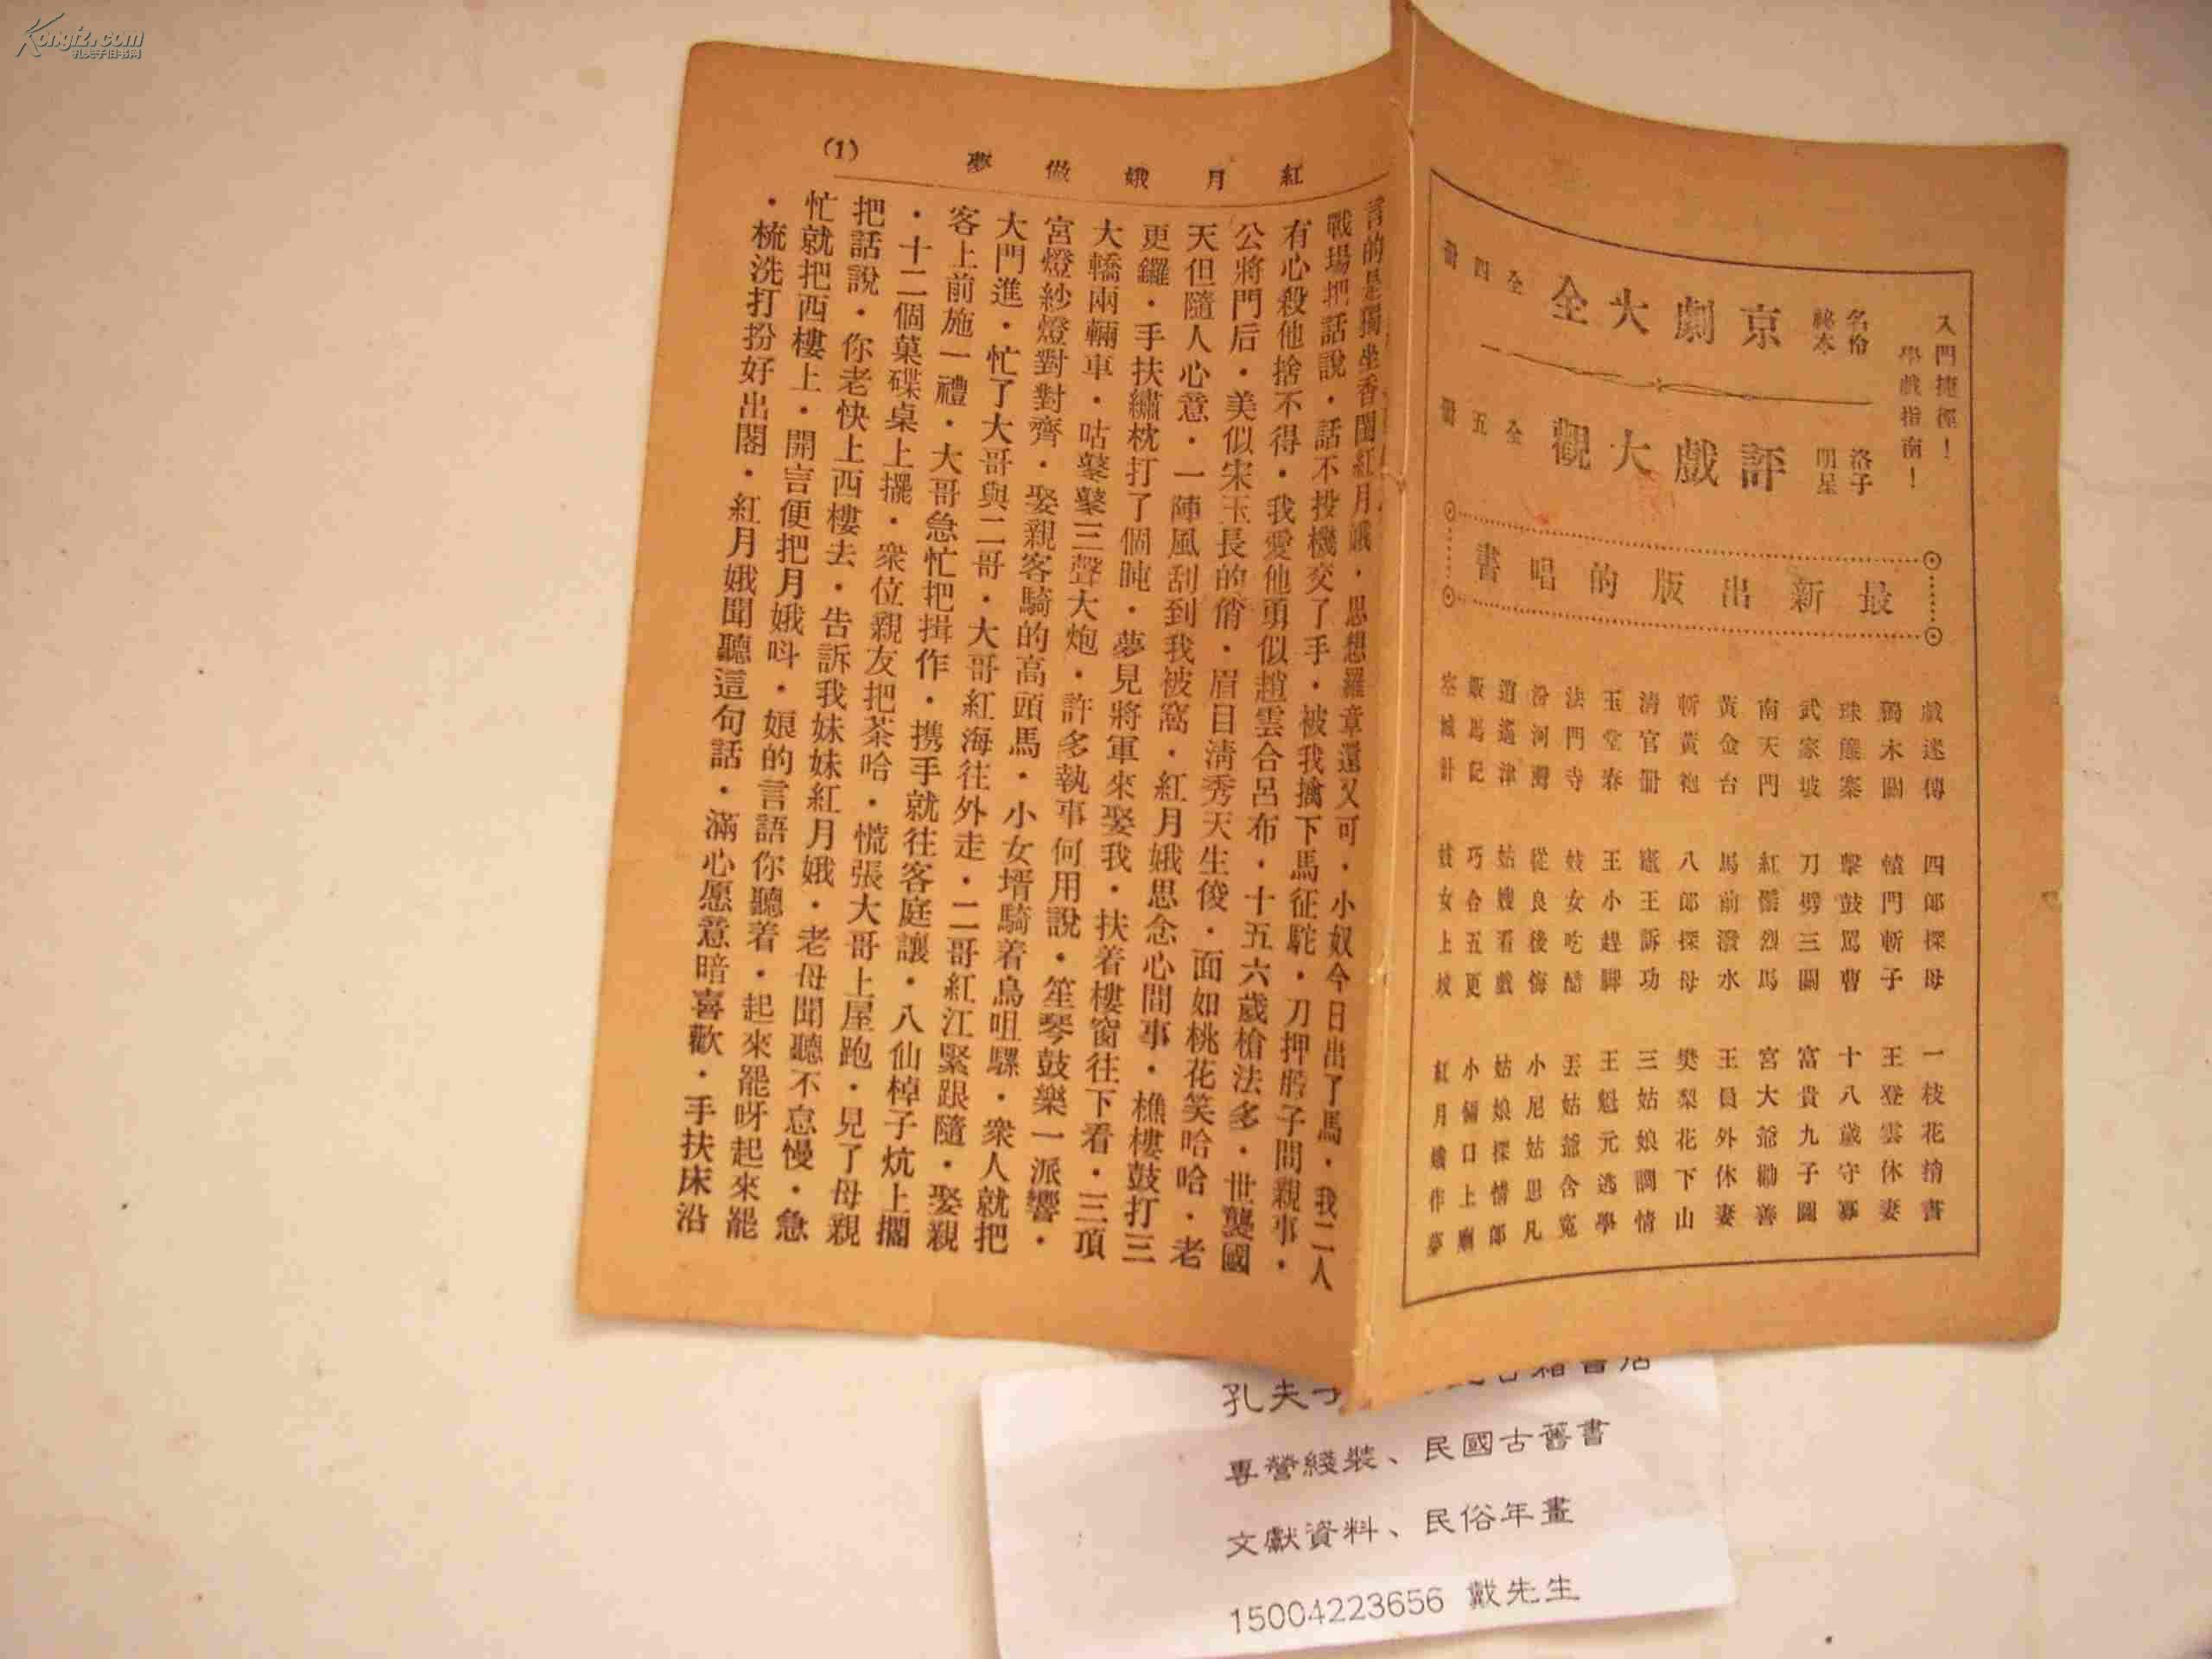 Kongfz.com
孔夫子旧书网
入門捷徑！
學戲指南！
名伶
秘本
京劇大全
全四冊
洛子
明星
評戲大觀
全五冊
最新出版的唱書
戲迷傳 四郎探母 一枝花捎書
鴉木關 轅門斬子 王登雲休妻
珠簾寨 擊鼓罵曹 十八歲守寡
武家坡 刀劈三關 富貴九子圖
南天門 紅鬃烈馬 宮大爺勸善
黃金台 馬前潑水 王員外休妻
斬黃袍 八郎探母 樊梨花下山
清官冊 竈王訴功 三姑娘調情
玉堂春 王小趕脚 王魁元逃學
法門寺 妓女吃醋 丟姑爺含冤
汾河灣 從良後悔 小尼姑思凡
逍遙津 姑嫂看戲 姑娘探情郎
販馬記 巧合五更 小倆口上廟
空城計 妓女上坟 紅月娥作夢
紅月娥做夢
(1)
言的是獨坐香閨紅月娥．思想羅章還又可．小奴今日出了馬．我二人
戰場把話說．話不投機交了手．被我擒下馬征駝．刀押脖子問親事．
有心殺他捨不得．我愛他勇似趙雲合呂布．十五六歲槍法多．世襲國
公將門后．美似宋玉長的俏．眉目淸秀天生俊．面如桃花笑哈哈．老
天但隨人心意．一陣風刮到我被窩．紅月娥思念心間事．樵樓鼓打三
更鑼．手扶繡枕打了個盹．夢見將軍來娶我．扶着樓窗往下看．三頂
大轎兩輛車．咕鼕鼕三聲大炮．許多執事何用說．笙琴鼓樂一派響．
宮燈紗燈對對齊．娶親客騎的高頭馬．小女壻騎着烏咀騾．衆人就把
大門進．忙了大哥與二哥．大哥紅海往外走．二哥紅江緊跟隨．娶親
客上前施一禮．大哥急忙把揖作．携手就往客庭讓．八仙棹子炕上擱
．十二個菓碟桌上擺．衆位親友把茶哈．慌張大哥上屋跑．見了母親
把話說．你老快上西樓去．告訴我妹妹紅月娥．老母聞聽不怠慢．急
忙就把西樓上．開言便把月娥呌．娘的言語你聽着．起來罷呀起來罷
．梳洗打扮好出閣．紅月娥聞聽這句話．滿心愿意暗喜歡．手扶床沿
孔夫
專營綫裝、民國古舊書
文獻資料、民俗年畫
15004223656 戴先生